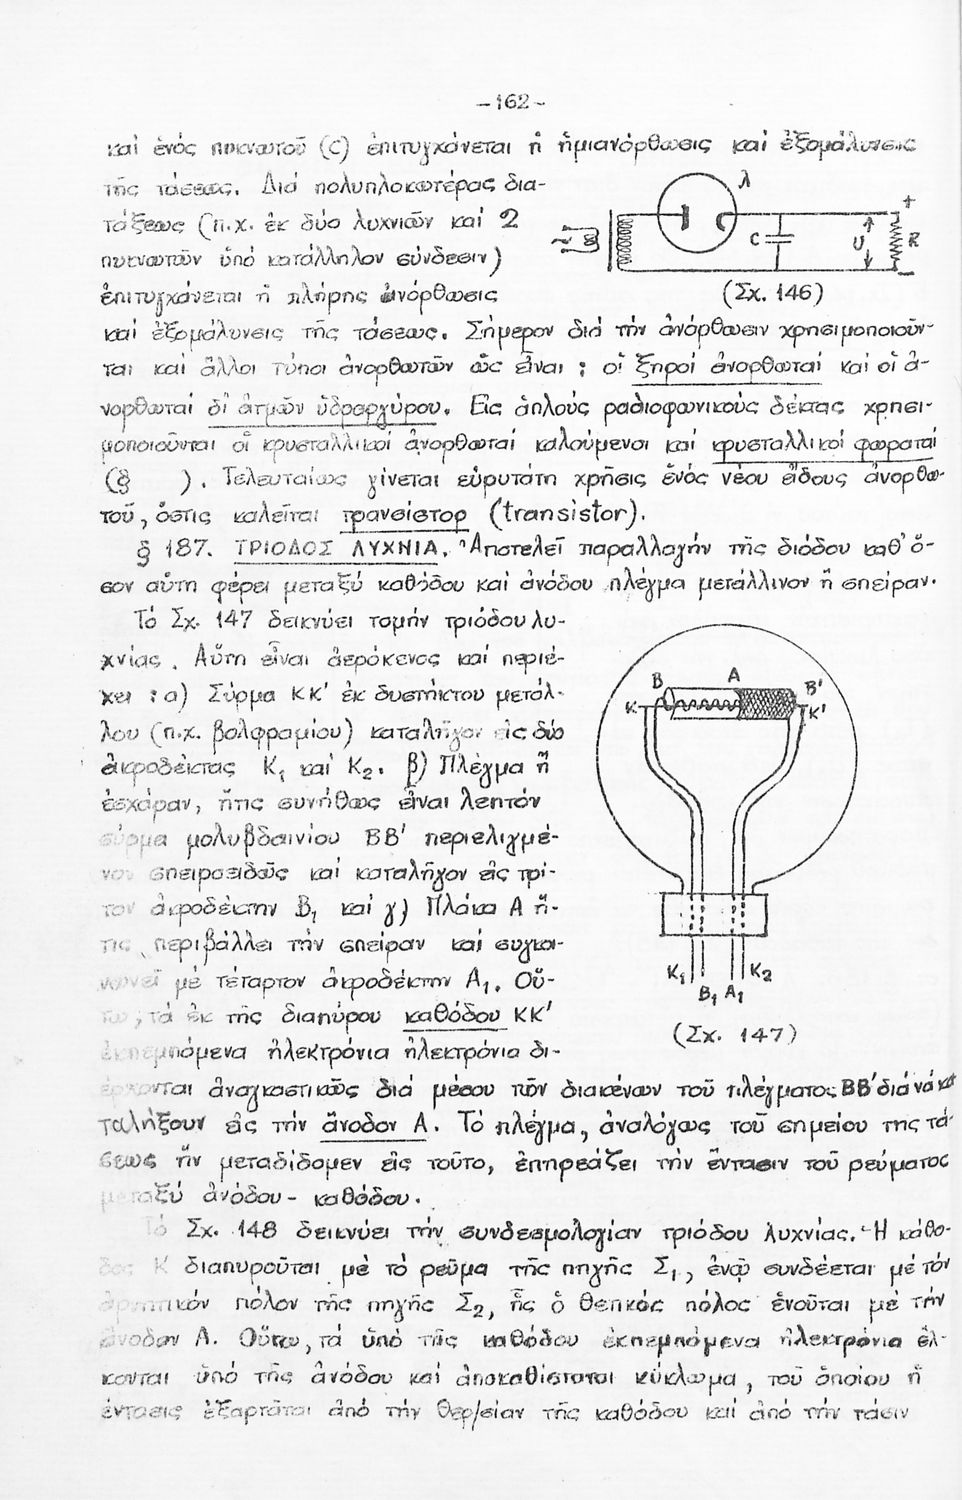 -162-
καὶ ἑνός πυκνωτοῦ (C) ἐπιτυγχάνεται ἡ ἡμιανόρθωσις καὶ ἐξομάλυνσις
τῆς τάσεως. Διά πολυπλοκωτέρας δια-
τάξεως (π.χ. ἐκ δύο λυχνιῶν καί 2
πυκνωτῶν ὑπό κατάλληλον σύνδεσιν)
ἐπιτυγχάνεται ἡ πλήρης ἀνόρθωσις
λ
C
U
R
+
−
(Σχ. 146)
καί ἐξομάλυνσις τῆς τάσεως. Σήμερον διά τήν ἀνόρθωσιν χρησιμοποιοῦν-
ται καί ἄλλοι τύποι ἀνορθωτῶν ὡς εἶναι : οἱ ξηροί ἀνορθωταί καί οἱ ἀ-
νορθωταί δι' ἀτμῶν ὑδραργύρου. Εἰς ἁπλούς ραδιοφωνικούς δέκτας χρησι-
μοποιοῦνται οἱ κρυσταλλικοί ἀνορθωταί καλούμενοι καί κρυσταλλικοί φωραταί
(§ ). Τελευταίως γίνεται εὐρυτάτη χρῆσις ἑνός νέου εἴδους ἀνορθω-
τοῦ, ὅστις καλεῖται τρανσίστορ (transistor).
§ 187. ΤΡΙΟΔΟΣ ΛΥΧΝΙΑ. Ἀποτελεῖ παραλλαγήν τῆς διόδου καθ' ὅ-
σον αὕτη φέρει μεταξύ καθόδου καί ἀνόδου πλέγμα μετάλλινον ἤ σπείραν.
Τό Σχ. 147 δεικνύει τομήν τριόδου λυ-
χνίας. Αὕτη εἶναι ἀερόκενος καί περιέ-
χει : α) Σύρμα ΚΚ' ἐκ δυστήκτου μετάλ-
λου (π.χ. βολφραμίου) καταλῆγον εἰς δύο
ἀκροδέκτας Κ₁ καί Κ₂. β) Πλέγμα ἤ
ἐσχάραν, ἥτις συνήθως εἶναι λεπτόν
σύρμα μολυβδαινίου ΒΒ' περιελιγμέ-
νον σπειροειδῶς καί καταλῆγον εἰς τρί-
τον ἀκροδέκτην Β₁ καί γ) Πλάκα Α ἥ-
τις περιβάλλει τήν σπείραν καί συγκοι-
νωνεῖ μέ τέταρτον ἀκροδέκτην Α₁. Οὕ-
τω, τά ἐκ τῆς διαπύρου καθόδου ΚΚ'
ἐκπεμπόμενα ἠλεκτρόνια ἠλεκτρόνια δι-
Β
Α
Β'
Κ
Κ'
Κ₁
Β₁
Α₁
Κ₂
(Σχ. 147)
έρχονται ἀναγκαστικῶς διά μέσου τῶν διακένων τοῦ πλέγματος ΒΒ' διά νά κα-
ταλήξουν εἰς τήν ἄνοδον Α. Τό πλέγμα, ἀναλόγως τοῦ σημείου της τά-
σεως ἥν μεταδίδομεν εἰς τοῦτο, ἐπηρεάζει τήν ἔντασιν τοῦ ρεύματος
μεταξύ ἀνόδου - καθόδου.
Τό Σχ. 148 δεικνύει τήν συνδεσμολογίαν τριόδου λυχνίας. Ἡ κάθο-
δος Κ διαπυροῦται μέ τό ρεῦμα τῆς πηγῆς Σ₁, ἐνῷ συνδέεται μέ τόν
ἀρνητικόν πόλον τῆς πηγῆς Σ₂, ἧς ὁ θετικός πόλος ἑνοῦται μέ τήν
ἄνοδον Α. Οὕτω, τά ὑπό τῆς καθόδου ἐκπεμπόμενα ἠλεκτρόνια ἕλ-
κονται ὑπό τῆς ἀνόδου καί ἀποκαθίσταται κύκλωμα, τοῦ ὁποίου ἡ
ἔντασις ἐξαρτᾶται ἀπό τήν θερ/σίαν τῆς καθόδου καί ἀπό τήν τάσιν